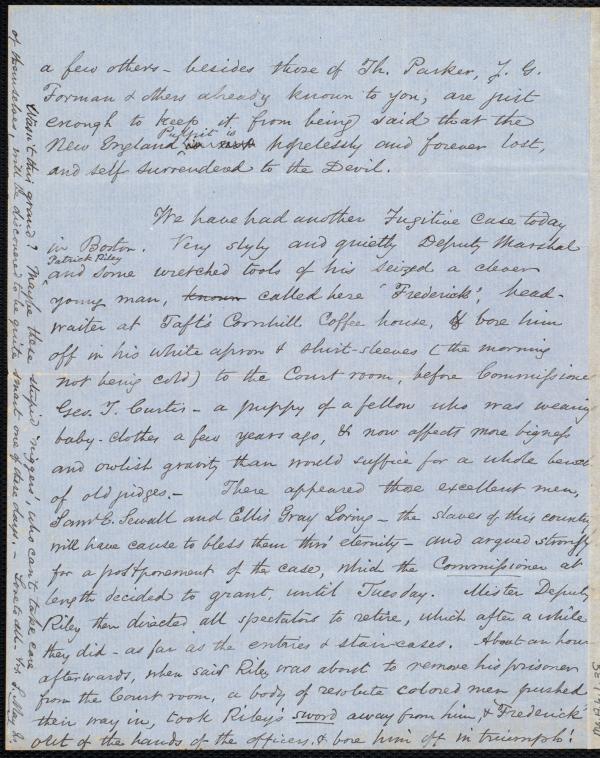 a few others - besides those of Th. Parker, J. G.
Forman & others already known to you, are just
enough to keep it from being said that the
New England Pulpit is hopelessly and forever lost,
and self surrendered to the Devil.
We have had another Fugitive Case today
in Boston. Very slyly and quietly Deputy Marshal
Patrick Riley
and some wretched tools of his seized a clever
young man, known called here 'Frederick', head-
waiter at Taft's Cornhill Coffee house, & bore him
off in his white apron & shirt-sleeves (the morning
not being cold) to the Court room, before Commissioner
Geo. T. Curtis - a puppy of a fellow who was wearing
baby-clothes a few years ago, & now affects more bigness
and owlish gravity than would suffice for a whole bench
of old judges. - There appeared those excellent men,
Saml. E. Sewall and Ellis Gray Loring - the slaves of this country
will have cause to bless them thro' eternity - and argued strongly
for a postponement of the case, which the Commissioner at
length decided to grant, until Tuesday. Mister Deputy
Riley then directed all spectators to retire, which after a while
they did - as far as the entries & stair-cases. About an hour
afterwards, when said Riley was about to remove his prisoner
from the Court room, a body of resolute colored men pushed
their way in, took Riley's sword away from him, & "Frederick"
out of the hands of the officers, & bore him off in triumph!
Wasn't this grand? Maybe these stupid niggers, who can't take care
of themselves, will be discovered to be quite smart one of these days. - S. May Jr.
Ms.A.6.1.35